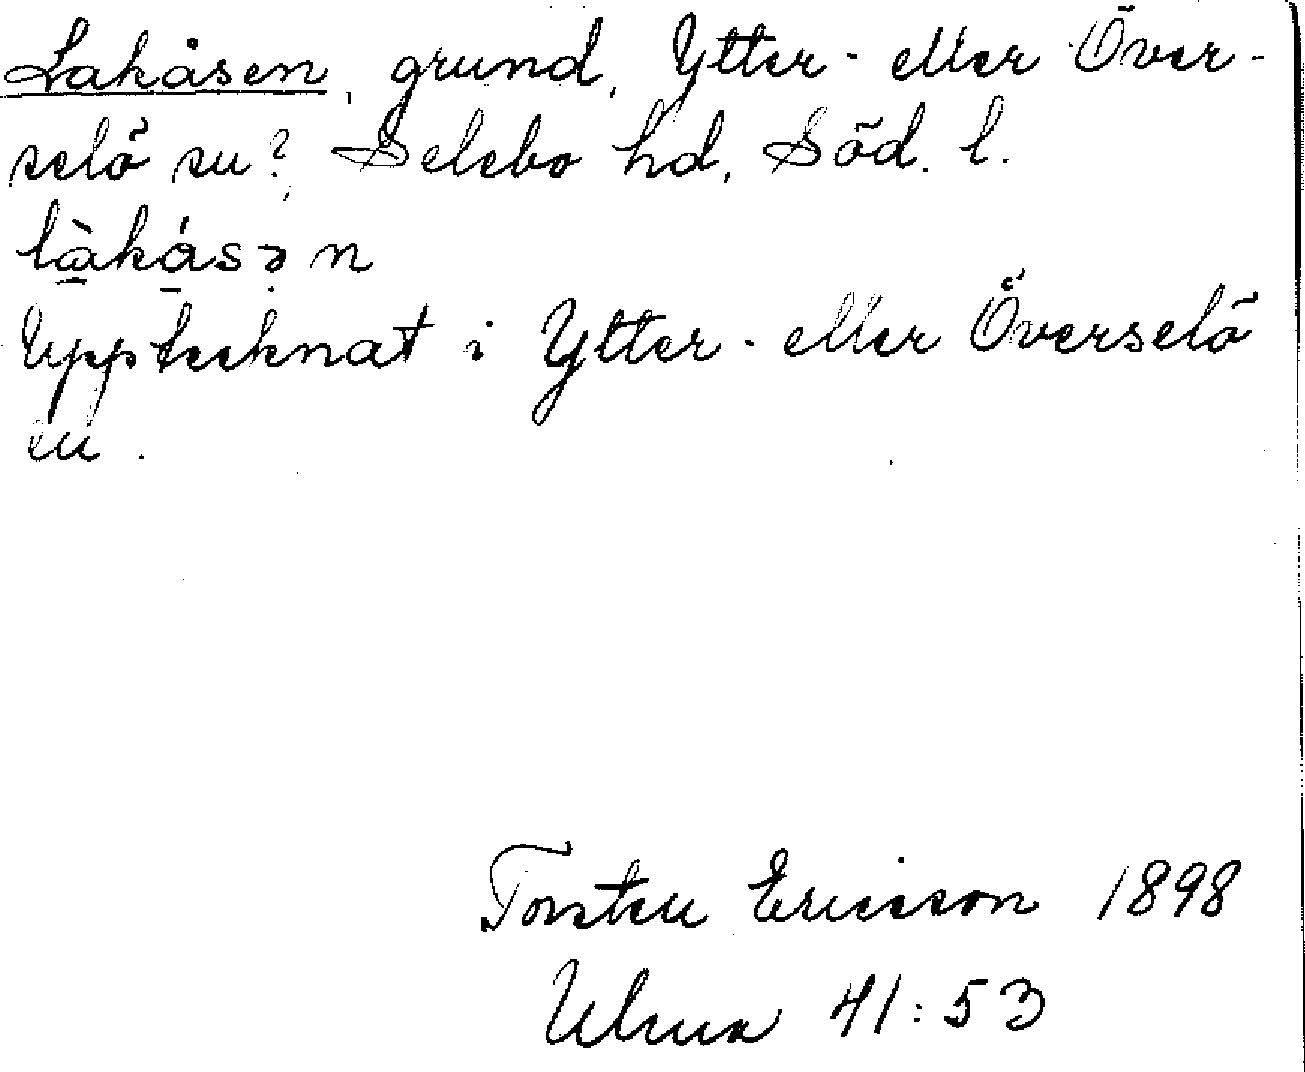 Lakåsen, grund, Ytter- eller Över-
selö sn? Selebo hd, Söd. l.
làkásən
Upptecknat i Ytter- eller Överselö
sn.
Torsten Ericsson 1898
Ulma 41:53